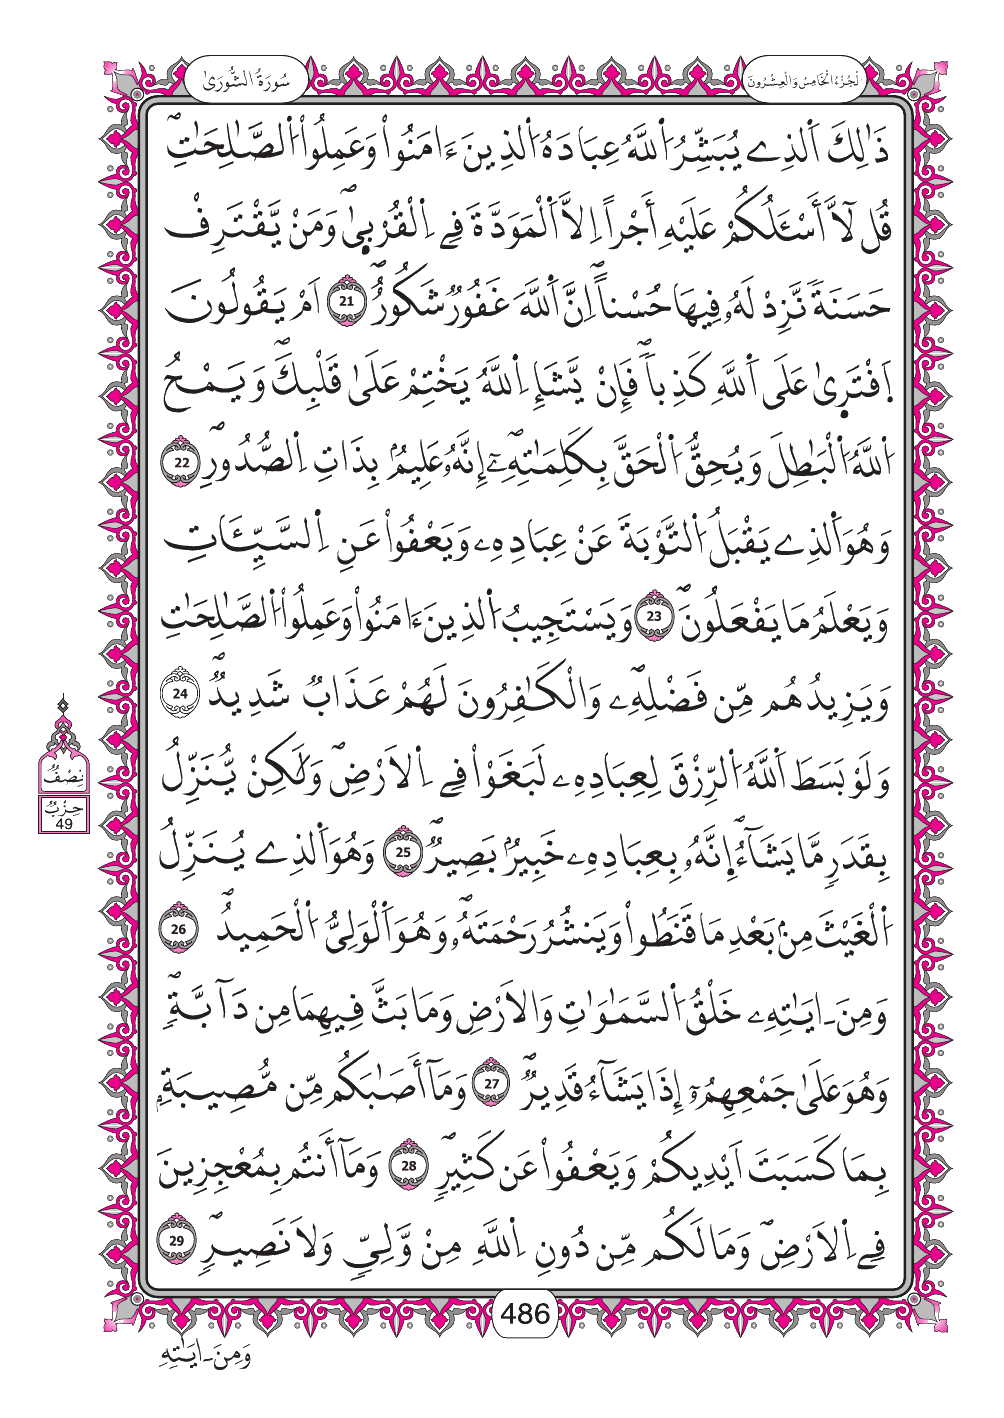 الجُزْءُ الْخَامِسُ وَالْعِشْرُونَ
سُورَةُ الشُّورَىٰ
ذَٰلِكَ ٱلَذِے يُبَشِّرُ ٱللَّهُ عِبَادَهُ ٱلذِينَ ءَامَنُواْ وَعَمِلُواْ ٱلصَّٰلِحَٰتِۖ
قُل لَّآ أَسْـَٔلُكُمْ عَلَيْهِ أَجْراً اِلَّا ٱلْمَوَدَّةَ فِے اِ۬لْقُرْب۪ىٰۖ وَمَنْ يَّقْتَرِفْ
حَسَنَةٗ نَّزِدْ لَهُۥ فِيهَا حُسْناًۖ اِنَّ ٱللَّهَ غَفُورٞ شَكُورٌۖ 21 اَمْ يَقُولُونَ
اَ۪فْتَر۪ىٰ عَلَى ٱللَّهِ كَذِباٗۖ فَإِنْ يَّشَإِ اِ۬للَّهُ يَخْتِمْ عَلَىٰ قَلْبِكَۖ وَيَمْحُ
ٱللَّهُ ٱلْبَٰطِلَ وَيُحِقُّ ٱلْحَقَّ بِكَلِمَٰتِهِۦٓۖ إِنَّهُۥ عَلِيمُۢ بِذَاتِ اِ۬لصُّدُورِۖ 22
وَهُوَ ٱلَذِے يَقْبَلُ ٱلتَّوْبَةَ عَنْ عِبَادِهِۦ وَيَعْفُواْ عَنِ اِ۬لسَّيِّـَٔاتِ
وَيَعْلَمُ مَا يَفْعَلُونَۖ 23 وَيَسْتَجِيبُ ٱلذِينَ ءَامَنُواْ وَعَمِلُواْ ٱلصَّٰلِحَٰتِ
وَيَزِيدُهُم مِّن فَضْلِهِۦۖ وَالْكَٰفِرُونَ لَهُمْ عَذَابٞ شَدِيدٞۖ 24
وَلَوْ بَسَطَ ٱللَّهُ ٱلرِّزْقَ لِعِبَادِهِۦ لَبَغَوْاْ فِے اِ۬لَارْضِۖ وَلَٰكِنْ يُّنَزِّلُ
بِقَدَرٖ مَّا يَشَآءُۖ اِنَّهُۥ بِعِبَادِهِۦ خَبِيرُۢ بَصِيرٞۖ 25 وَهُوَ ٱلَذِے يُنَزِّلُ
ٱلْغَيْثَ مِنۢ بَعْدِ مَا قَنَطُواْ وَيَنشُرُ رَحْمَتَهُۥۖ وَهُوَ ٱلْوَلِيُّ ٱلْحَمِيدُۖ 26
وَمِنَ ـ ايَٰتِهِۦ خَلْقُ ٱلسَّمَٰوَٰتِ وَالَارْضِ وَمَا بَثَّ فِيهِمَا مِن دَآبَّةٖۖ
وَهُوَ عَلَىٰ جَمْعِهِمُۥٓ إِذَا يَشَآءُ قَدِيرٞۖ 27 وَمَآ أَصَٰبَكُم مِّن مُّصِيبَةِۢ
بِمَا كَسَبَتَ اَيْدِيكُمْ وَيَعْفُواْ عَن كَثِيرٖۖ 28 وَمَآ أَنتُم بِمُعْجِزِينَ
فِے اِ۬لَارْضِۖ وَمَا لَكُم مِّن دُونِ اِ۬للَّهِ مِنْ وَّلِيّٖ وَلَا نَصِيرٖۖ 29
نِصْفُ
حِزْبٌ
49
486
وَمِنَ ـ ايَٰتِهِ